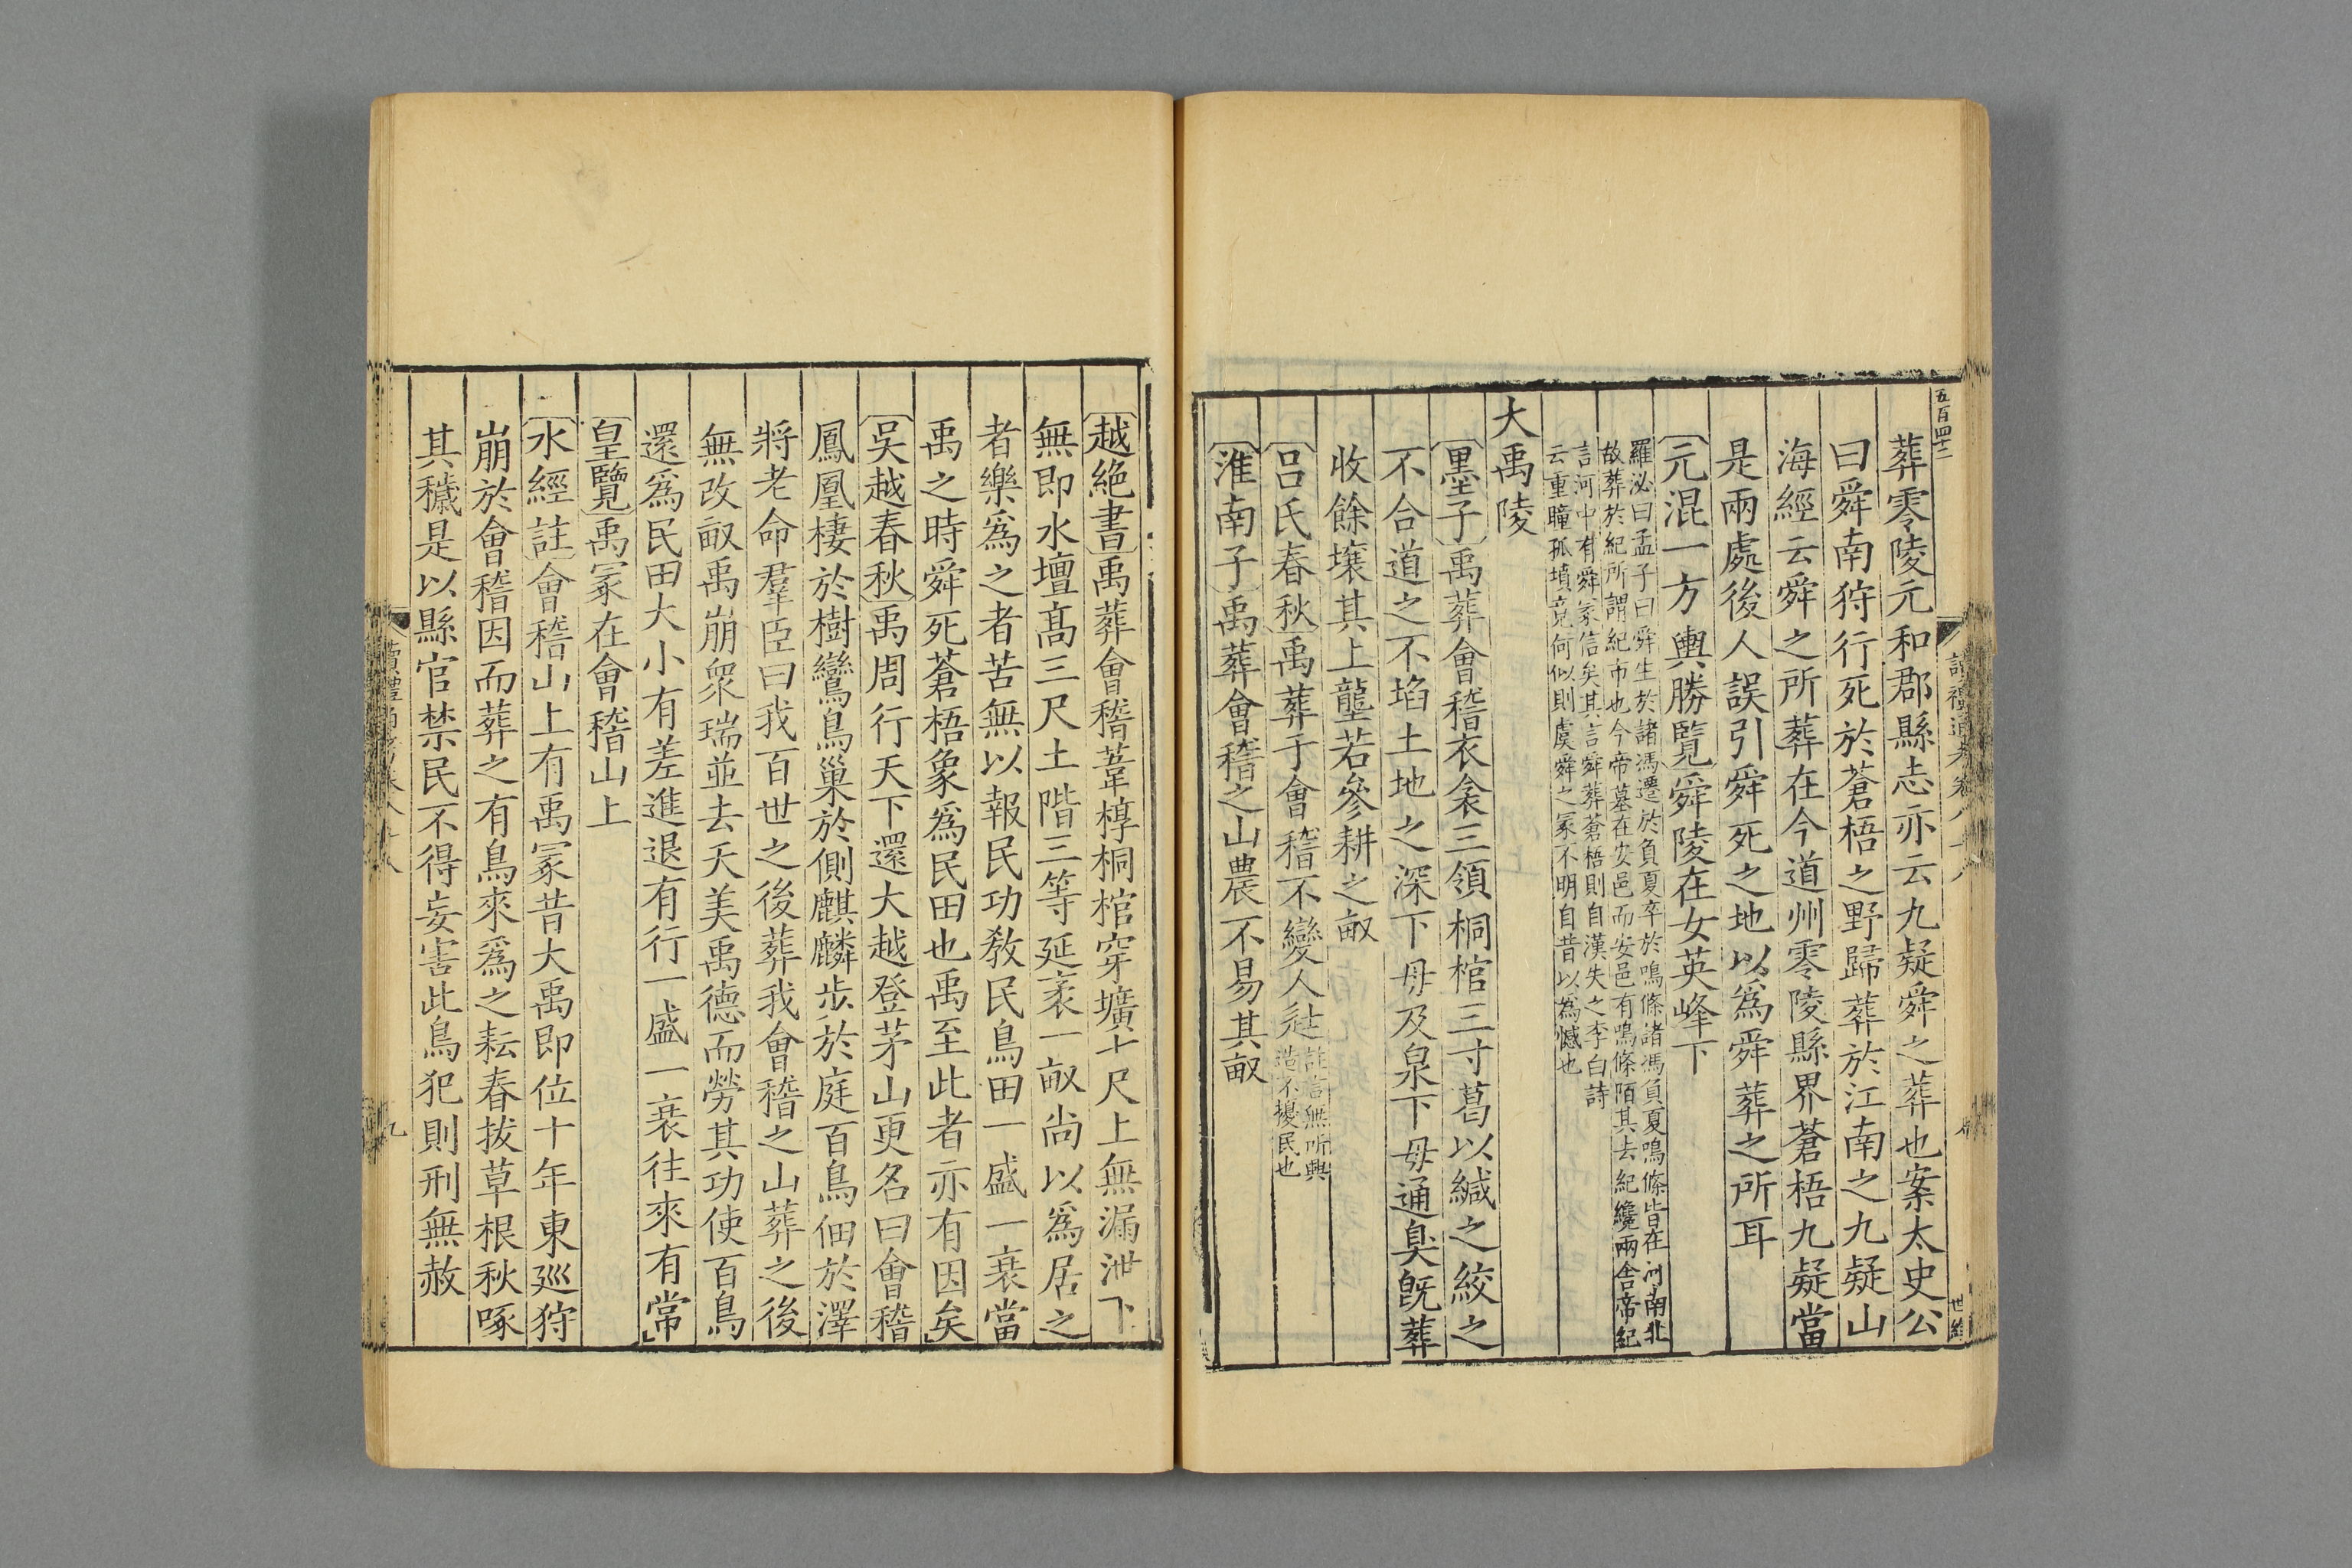 五百四十二
讀禮通考卷八十八
葬零陵元和郡縣志亦云九疑舜之葬也案太史公
曰舜南狩行死於蒼梧之野歸葬於江南之九疑山
海經云舜之所葬在今道州零陵縣界蒼梧九疑當
是兩處後人誤引舜死之地以爲舜葬之所耳
〔元混一方輿勝覽〕舜陵在女英峰下
羅泌曰孟子曰舜生於諸馮遷於負夏卒於鳴條諸馮負夏鳴條皆在河南北
故葬於紀所謂紀市也今帝墓在安邑而安邑有鳴條陌其去紀纔兩舍帝紀
言河中有舜冢信矣其言舜葬蒼梧則自漢失之李白詩
云重瞳孤墳竟何似則虞舜之冢不明自昔以爲憾也
大禹陵
〔墨子〕禹葬會稽衣衾三領桐棺三寸葛以緘之絞之
不合道之不埳土地之深下毋及泉下毋通臭旣葬
收餘壤其上壟若參耕之畝
〔呂氏春秋〕禹葬于會稽不變人迲註言無所興
造不擾民也
〔淮南子〕禹葬會稽之山農不易其畝
〔越絶書〕禹葬會稽葦椁桐棺穿壙七尺上無漏泄下
無即水壇髙三尺土階三等延袤一畝尚以爲居之
者樂爲之者苦無以報民功敎民鳥田一盛一衰當
禹之時舜死蒼梧象爲民田也禹至此者亦有因矣
〔吳越春秋〕禹周行天下還大越登茅山更名曰會稽
鳳凰棲於樹鸞鳥巢於側麒麟步於庭百鳥佃於澤
將老命羣臣曰我百世之後葬我會稽之山葬之後
無改畝禹崩衆瑞並去天美禹德而勞其功使百鳥
還爲民田大小有差進退有行一盛一衰往來有常
〔皇覽〕禹冢在會稽山上
〔水經註〕會稽山上有禹冢昔大禹即位十年東巡狩
崩於會稽因而葬之有鳥來爲之耘春拔草根秋啄
其穢是以縣官禁民不得妄害此鳥犯則刑無赦
讀禮通考卷八十八
九